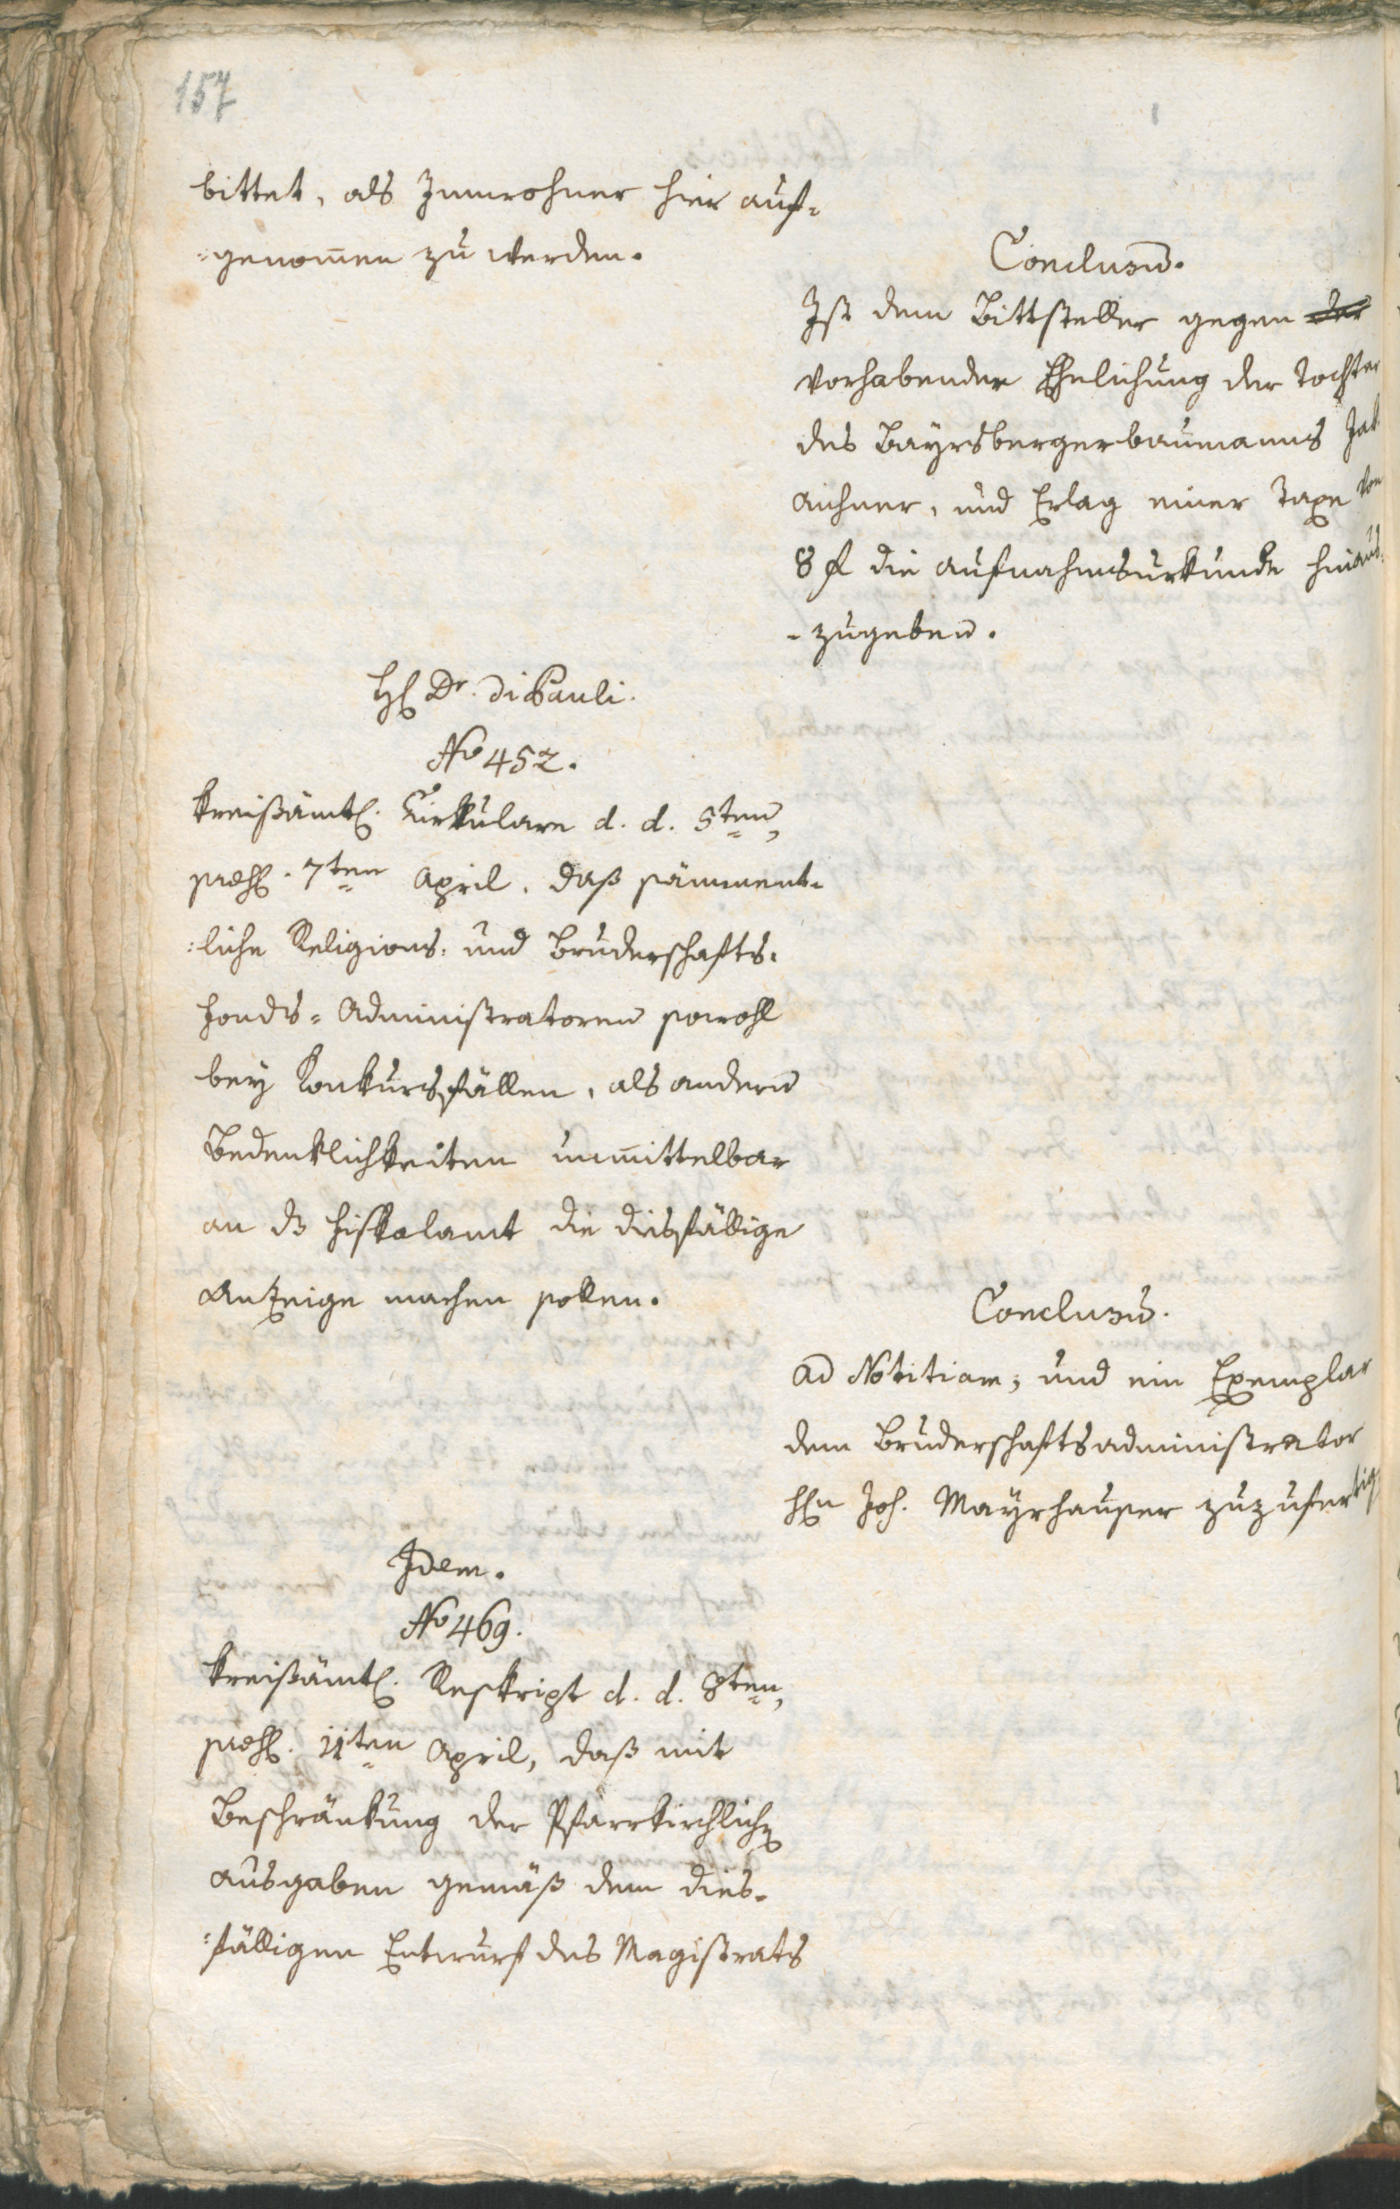 157
bittet, als Innwohner hier auf-
-genom̅en zu werden.
Conclusu̅.
Ist dem Bittsteller gegen der
vorhabender Ehelichung der Tochter
des Bayrsbergerbaumanns Jak.
Aichner, und Erlag einer Taxe von
8 f die Aufnahmsurkunde hinaus-
-zugeben.
H. Dr. Di Pauli.
No 452.
Kreißämtl. Cirkulare d. d. 5ten,
præs. 7ten April, daß sämment-
-liche Religions- und Bruderschafts-
Fonds-Administratoren sowohl
bey Konkursfällen, als andern
Bedenklichkeiten unmittelbar
an ds Fiskalamt die diesfällige
Anzeige machen sollen.
Conclusu̅.
Ad Notitiam; und ein Exemplar
dem Bruderschaftsadministrator
H̅n Joh. Mayrhauser zuzufertig.
Idem.
No 469.
Kreißämtl. Reskript d. d. 8ten,
præs. 11ten April, daß mit
Beschränkung der Pfarrkirchlichen
Ausgaben gemäß dem dies-
-fälligen Entwurf des Magistrats